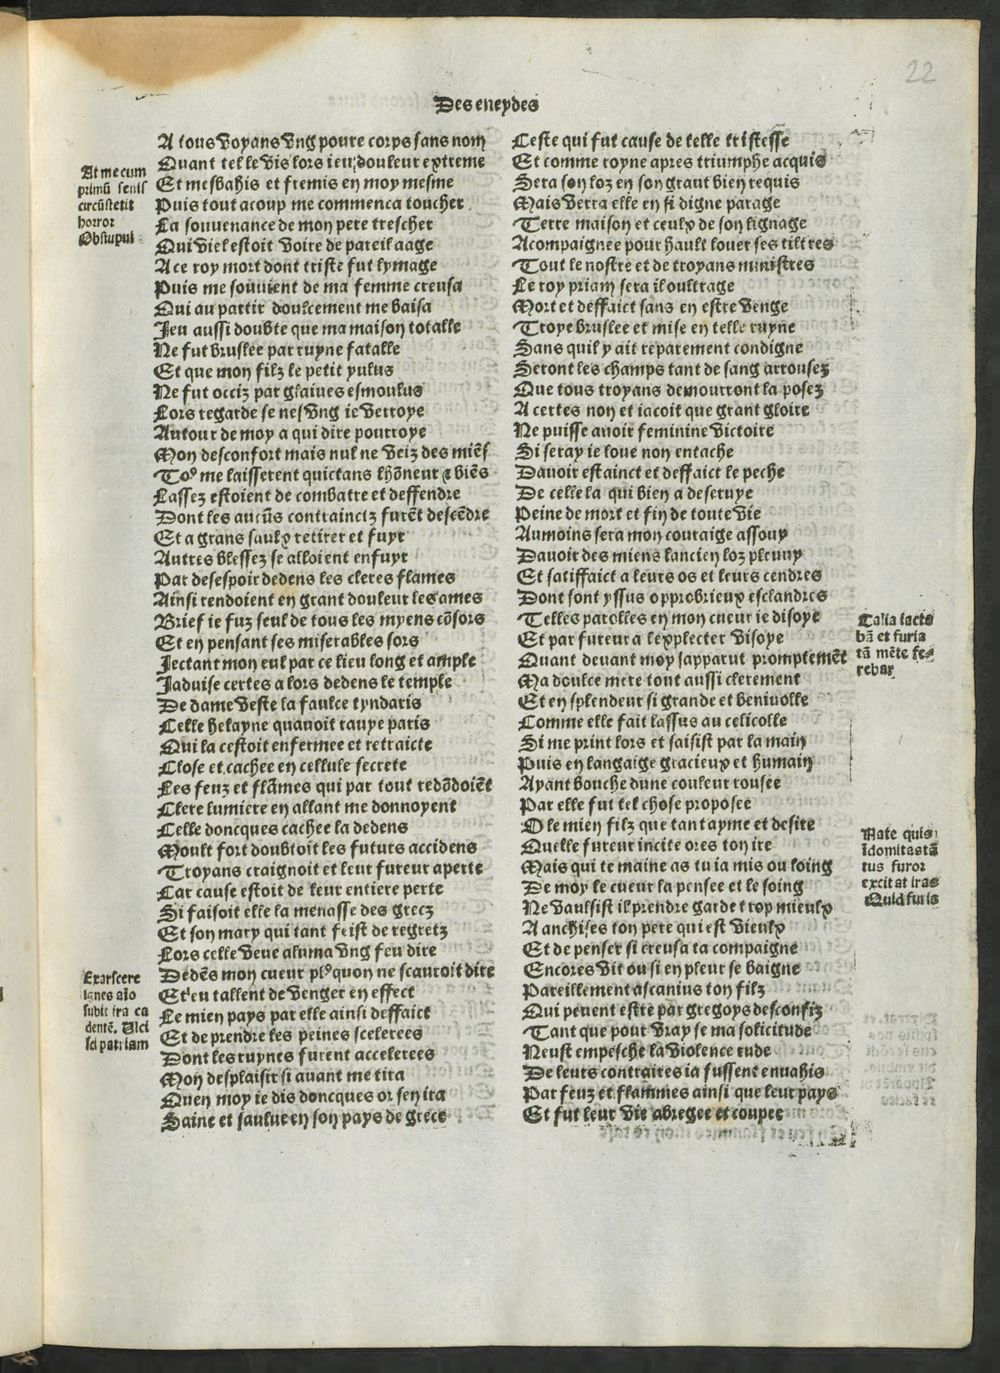 22
Des eneydes
At me cum
primū seuus
circūstetit
horror
Obstupui
A tous voyans vng poure corps sans nom
Quant tel le vis lors ieuz douleur extreme
Et mesbahis et fremis en moy mesme
Puis tout acoup me commenca toucher
La souuenance de mon pere trescher
Qui viel estoit voire de pareil aage
A ce roy mort dont triste fut lymage
Puis me souuient de ma femme creusa
Qui au partir doulcement me baisa
Jeu aussi doubte que ma maison totalle
Ne fut bruslee par ruyne fatalle
Et que mon filz le petit yulus
Ne fut occiz par glaiues esmoulus
Lors regarde se nesvng ie verroye
Autour de moy a qui dire pourroye
Mon desconfort mais nul ne veiz des miēs
Toꝰ me laisserent quictans lhōneur ⁊ biēs
Lassez estoient de combatre et deffendre
Dont les aucūs contrainctz furēt descēdre
Et a grans saulx retirer et fuyr
Autres blessez se alloient enfuyr
Par desespoir dedens les cleres flames
Ainsi rendoient en grant douleur les ames
Brief ie fuz seul de tous les myens cōsors
Et en pensant ses miserables sors
Jectant mon eul par ce lieu long et ample
Jaduise certes a lors dedens le temple
De dame veste la faulce tyndaris
Celle helayne quauoit rauye paris
Qui la cestoit enfermee et retraicte
Close et cachee en cellule secrete
Les feuz et flāmes qui par tout redōdoiēt
Clere lumiere en allant me donnoyent
Celle doncques cachee la dedens
Moult fort doubtoit les futurs accidens
Troyans craignoit et leur fureur aperte
Car cause estoit de leur entiere perte
Si faisoit elle la menasse des grecz
Et son mary qui tant feist de regretz
Lors celle veue aluma vng feu dire
Dedēs mon cueur plꝰ quon ne scauroit dire
Et eu tallent de venger en effect
Le mien pays par elle ainsi deffaict
Et de prendre les peines scelerees
Dont les ruynes furent accelerees
Mon desplaisir si auant me tira
Quen moy ie dis doncques or sen ira
Saine et saulue en son pays de grece
Exarsere
ignes aīo
subit ira ca
dentē. Ulci
sci patriam
Ceste qui fut cause de telle tristesse
Et comme royne apres triumphe acquis
Sera son loz en son grant bien requis
Mais verra elle en si digne parage
Terre maison et ceulx de son lignage
Acompaignee pour hault louer ses tiltres
Tout le nostre et de troyans ministres
Le roy priam sera il oultrage
Mort et deffaict sans en estre venge
Troye bruslee et mise en telle ruyne
Sans quil y ait reparement condigne
Seront les champs tant de sang arrousez
Que tous troyans demourront la posez
A certes non et iacoit que grant gloire
Ne puisse auoir feminine victoire
Si seray ie loue non entache
Dauoir estainct et deffaict le peche
De celle la qui bien a deseruye
Peine de mort et fin de toute vie
Aumoins sera mon couraige assouy
Dauoir des miens lancien loz pleuuy
Et satiffaict a leurs os et leurs cendres
Dont sont yssus opprobrieux esclandres
Telles parolles en mon cueur ie disoye
Et par fureur a lexplecter visoye
Quant deuant moy sapparut promptemēt
Ma doulce mere tout aussi clerement
Et en splendeur si grande et beniuolle
Comme elle fait lassus au celicolle
Si me print lors et saisist par la main
Puis en langaige gracieux et humain
Ayant bouche dune couleur rousee
Par elle fut tel chose proposee
O le mien filz que tant ayme et desire
Quelle fureur incite ores ton ire
Mais qui te maine as tu ia mis ou loing
De moy le cueur la pensee et le soing
Ne vaulsist il prendre garde trop mieulx
A anchises ton pere qui est vieulx
Et de penser si creusa ta compaigne
Encores vit ou si en pleur se baigne
Pareillement ascanius ton filz
Qui peuent estre par gregoys desconfiz
Tant que pour vray se ma solicitude
Neust empesche la violence rude
De leurs contraires ia fussent enuahis
Par feuz et flammes ainsi que leur pays
Et fut leur vie abregee et coupee
Talia iacta
bā et furia
tā mēte fe-
rebar
Nate quis
īdomitas tā
tus furor
excitat iras
Quid furis